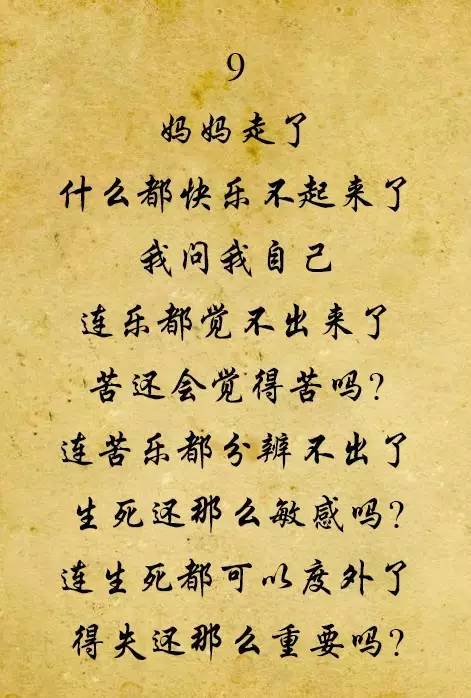 9
妈妈走了
什么都快乐不起来了
我问我自己
连乐都觉不出来了
苦还会觉得苦吗?
连苦乐都分辨不出了
生死还那么敏感吗?
连生死都可以度外了
得失还那么重要吗?